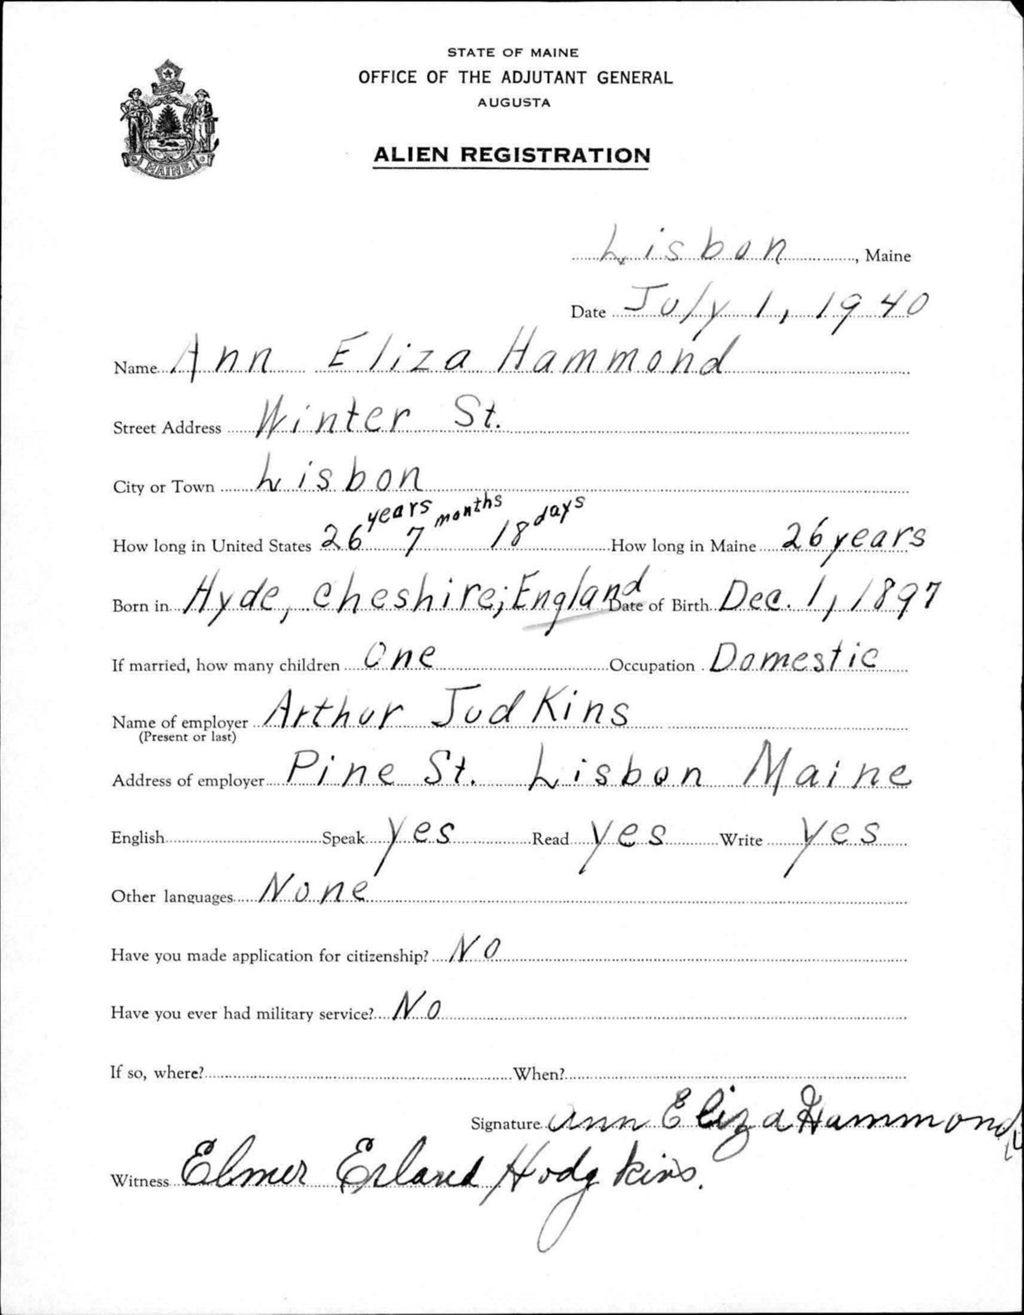 STATE OF MAINE
OFFICE OF THE ADJUTANT GENERAL
AUGUSTA
ALIEN REGISTRATION
MAINE
Lisbon, Maine
Date July 1, 1940
Name Ann Eliza Hammond
Street Address Winter St.
City or Town Lisbon
How long in United States 26 years 7 months 18 days How long in Maine 26 years
Born in Hyde, Cheshire; England Date of Birth Dec. 1, 1897
If married, how many children One Occupation Domestic
Name of employer Arthur Judkins
(Present or last)
Address of employer Pine St. Lisbon Maine
English Speak yes Read yes Write yes
Other languages None
Have you made application for citizenship? No
Have you ever had military service? No
If so, where? When?
Signature Ann Eliza Hammond
Witness Elmer Erland Hodgkins.